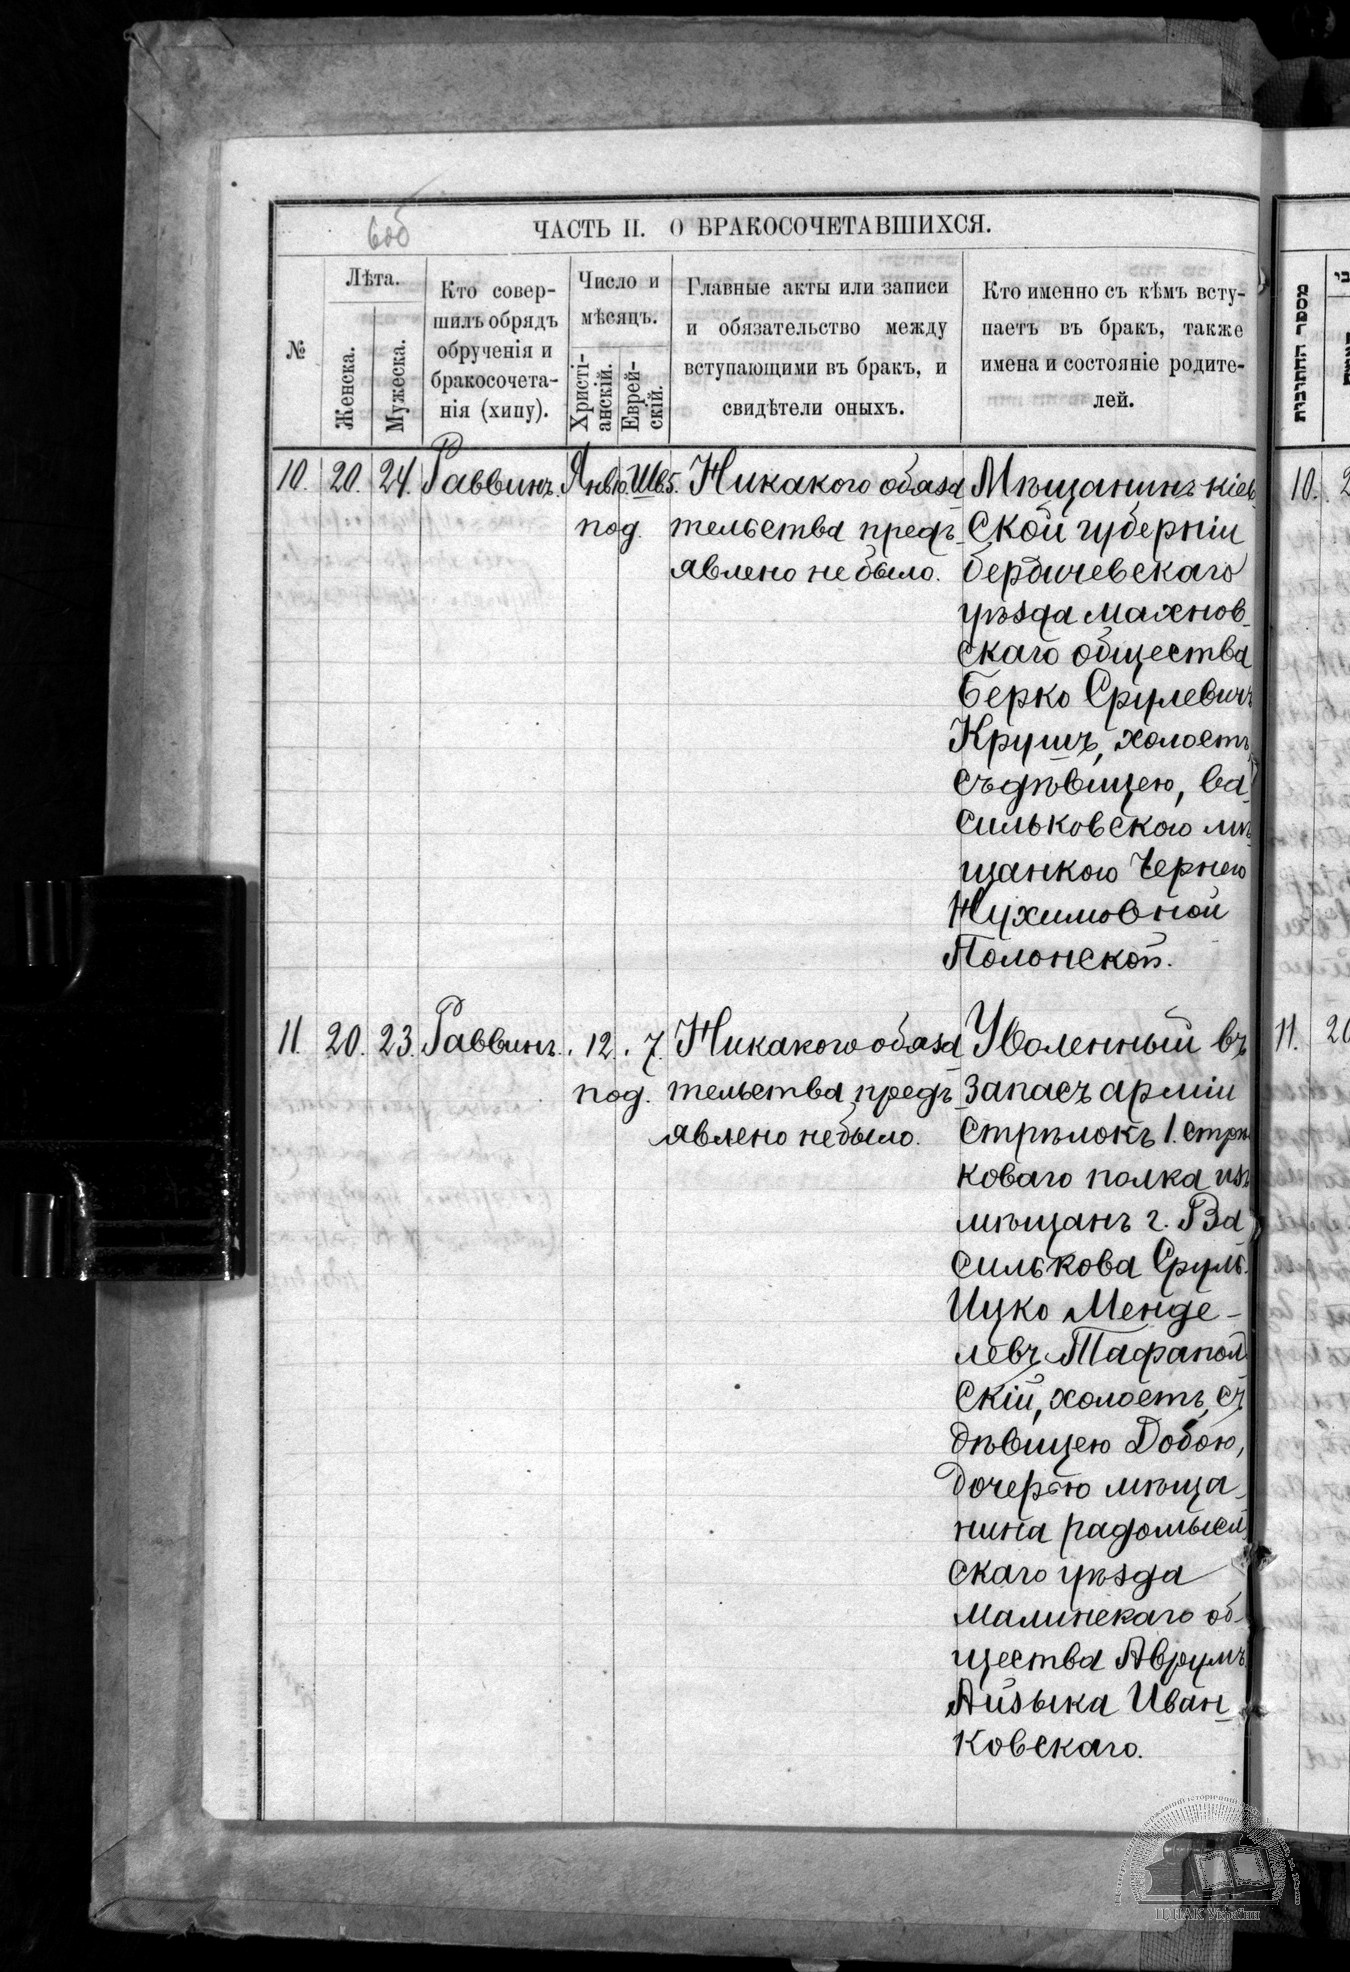 6об
ЧАСТЬ II. О БРАКОСОЧЕТАВШИХСЯ.
№
Лѣта.
Женска.
Мужеска.
Кто совер-
шилъ обрядъ
обрученія и
бракосочета-
нія (хипу).
Число и
мѣсяцъ.
Христі-
анскій.
Еврей-
скій.
Главные акты или записи
и обязательство между
вступающими въ бракъ, и
свидѣтели оныхъ.
Кто именно съ кѣмъ всту-
паетъ въ бракъ, также
имена и состояніе родите-
лей.
10. 20. 24. Раввинъ. Янв. 10. Шв. 5.
под.
Никакого обяза
тельства предъ-
явлено не было.
Мѣщанинъ кіев
ской губерніи
бердичевскаго
уѣзда махнов-
скаго общества
Берко Срулевичъ
Крушъ, холостъ,
съ дѣвицею, ва-
сильковскою мѣ-
щанкою Чернею
Нухимовной
Полонской.
11. 20. 23. Раввинъ. 12. 7.
под.
Никакого обяза
тельства предъ-
явлено не было.
Уволенный въ
запасъ арміи
стрѣлокъ 1. стрѣ
коваго полка изъ
мѣщанъ г. Ва
силькова Сруль-
Ицко Менде-
левъ Тафапол
скій, холостъ, съ
дѣвицею Добою,
дочерью мѣща-
нина радомысл
скаго уѣзда
малинскаго об-
щества Аврумъ
Айзыка Иван-
ковскаго.
מספר החתונות
10.
11. 20
ЦДІАК України